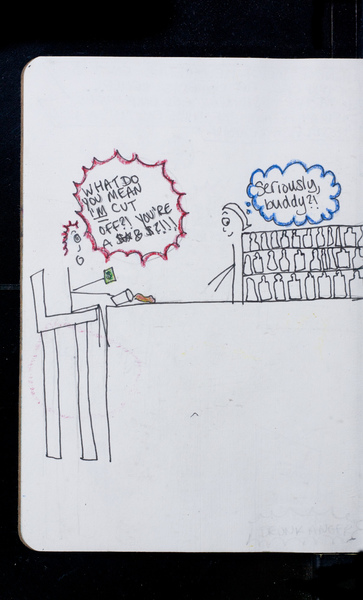 WHAT DO
YOU MEAN
I'M CUT
OFF?! YOU'RE
A $#& $?!!!
Seriously,
buddy?!
$